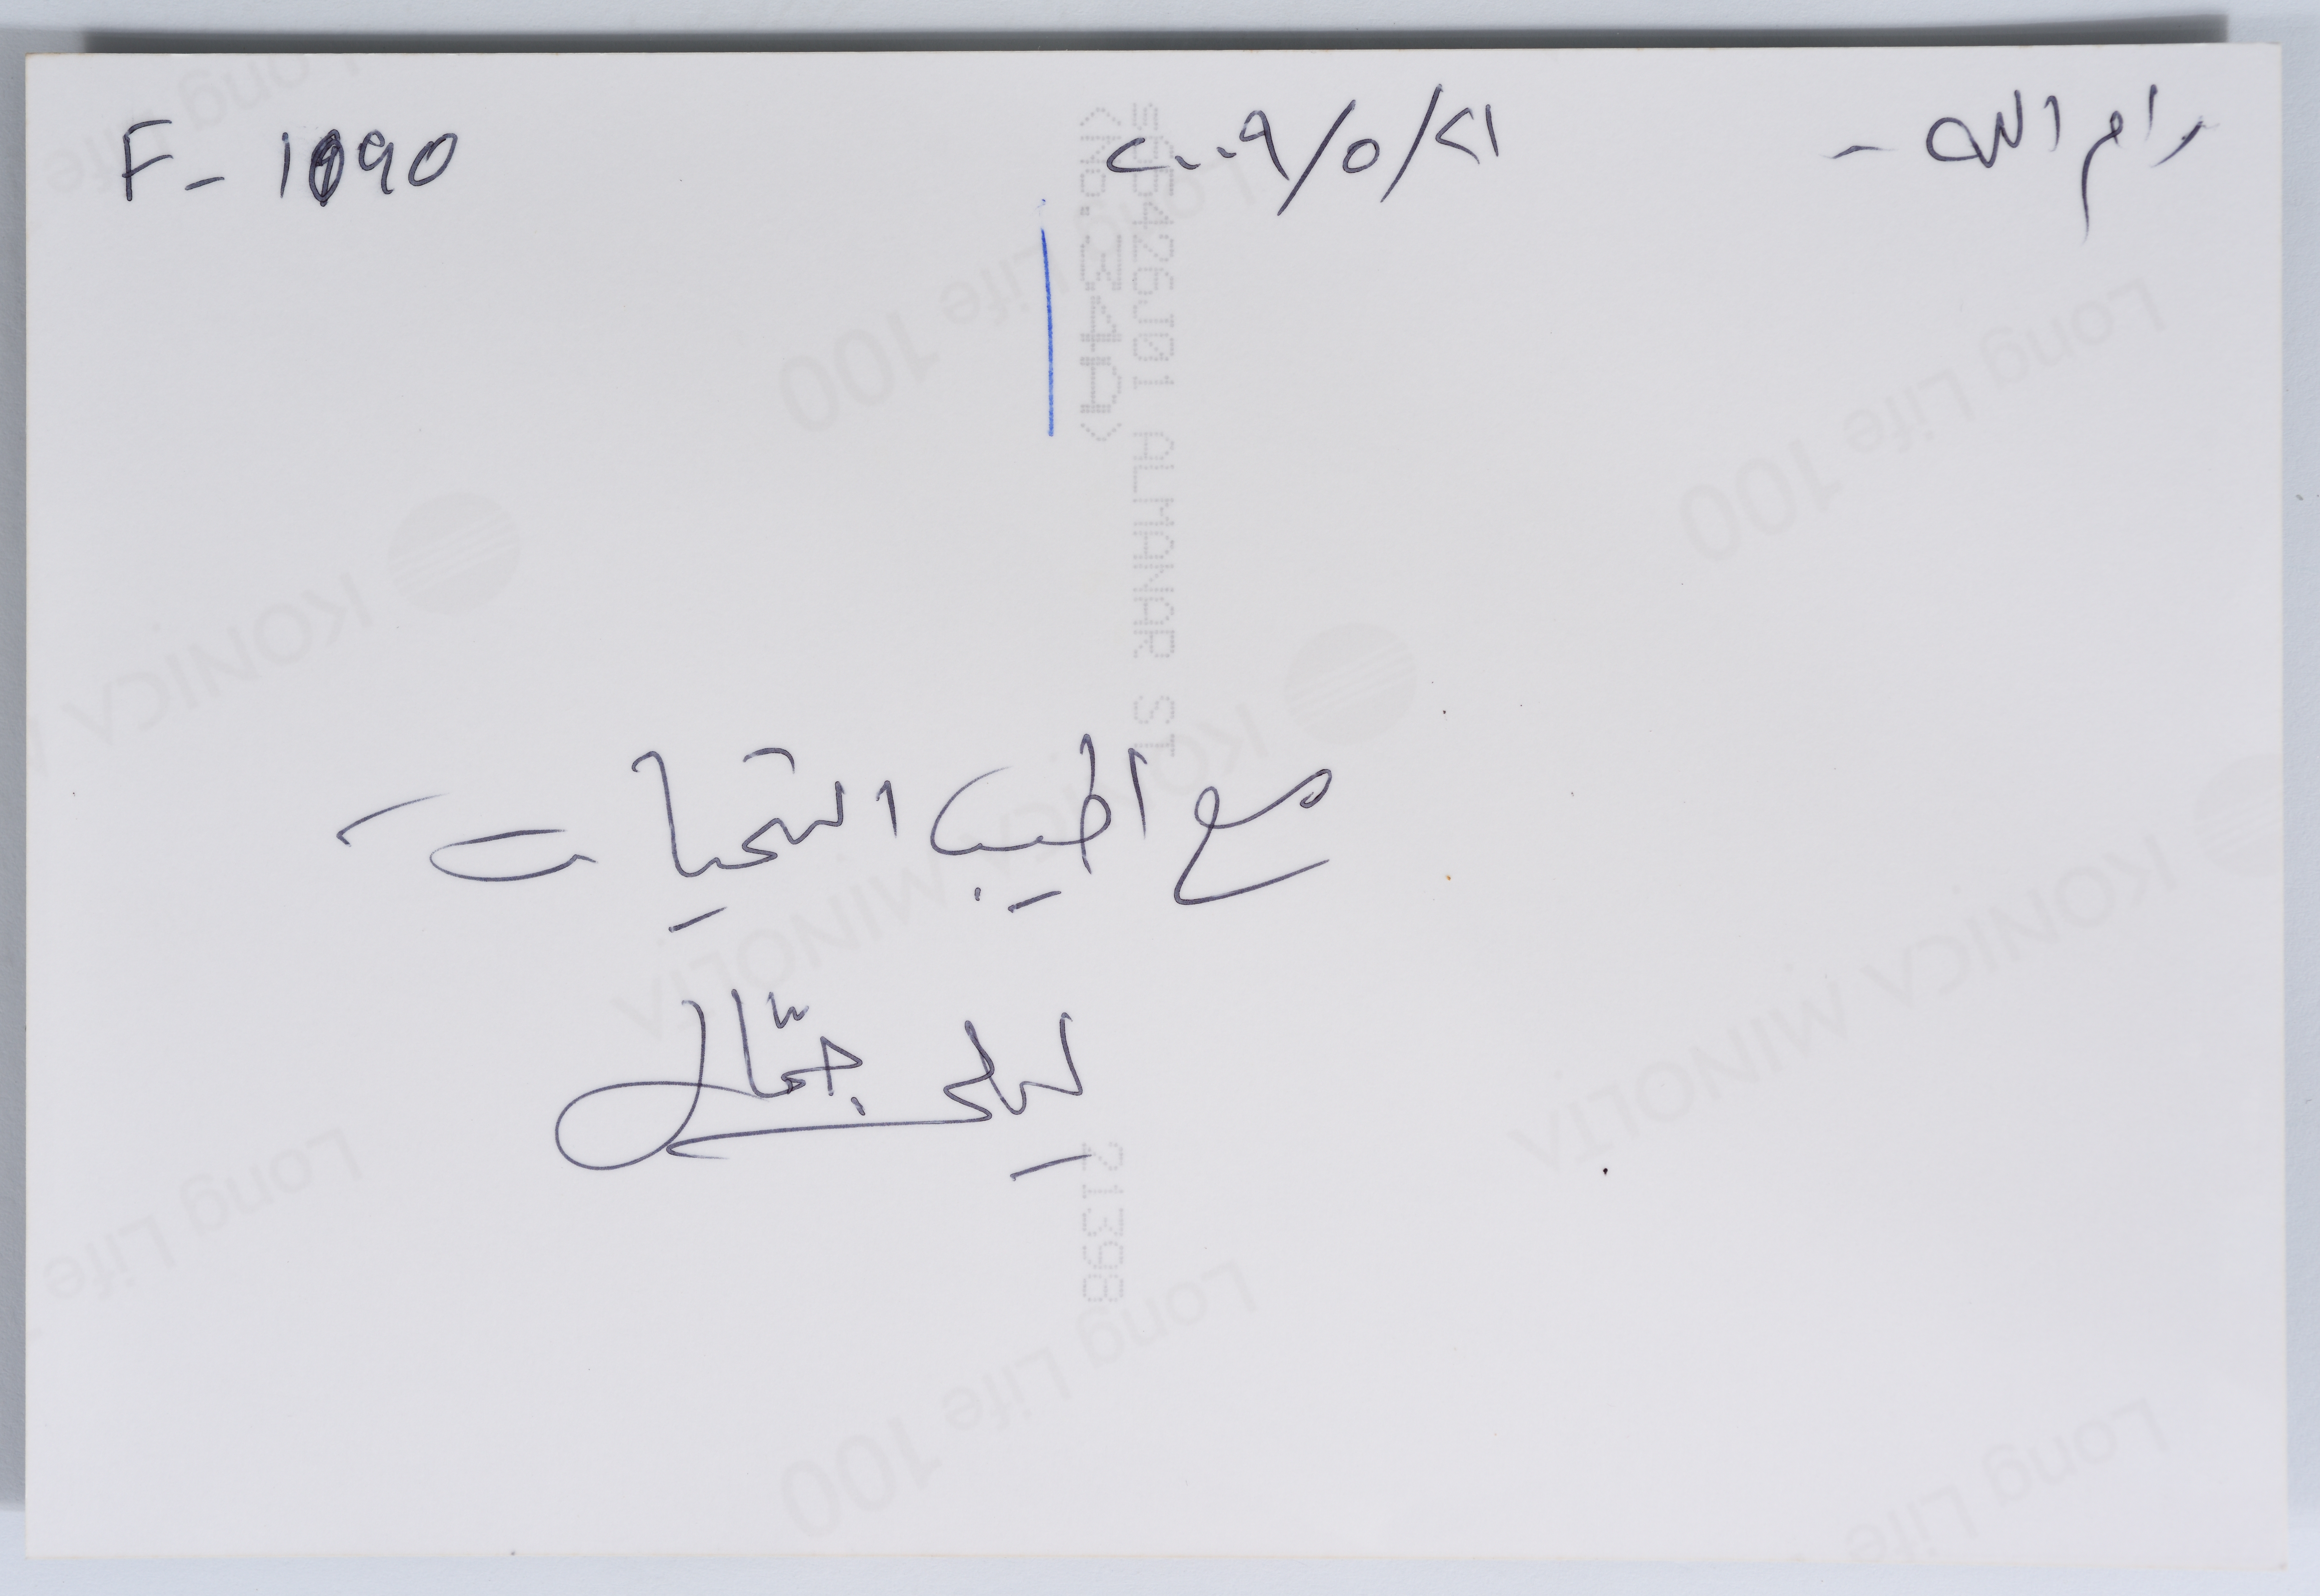 رام الله - ٢١/٥/٢٠٠٩ F-1090
مع اطيب التحيات
ليلى جمّال
=G5426J01 ALMANAR ST
<No.34A> 21398
Long Life 100
KONICA MINOLTA